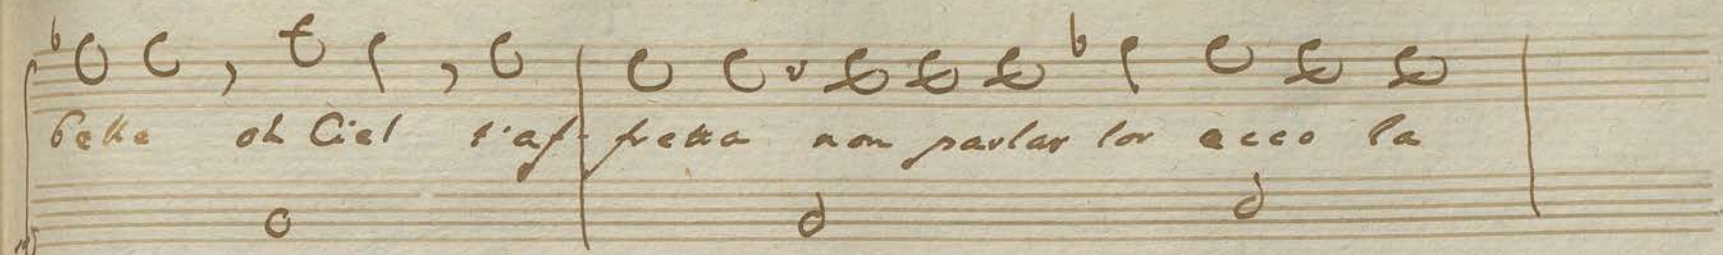 oh Ciel t'af-fretta non parlar lor ecco la